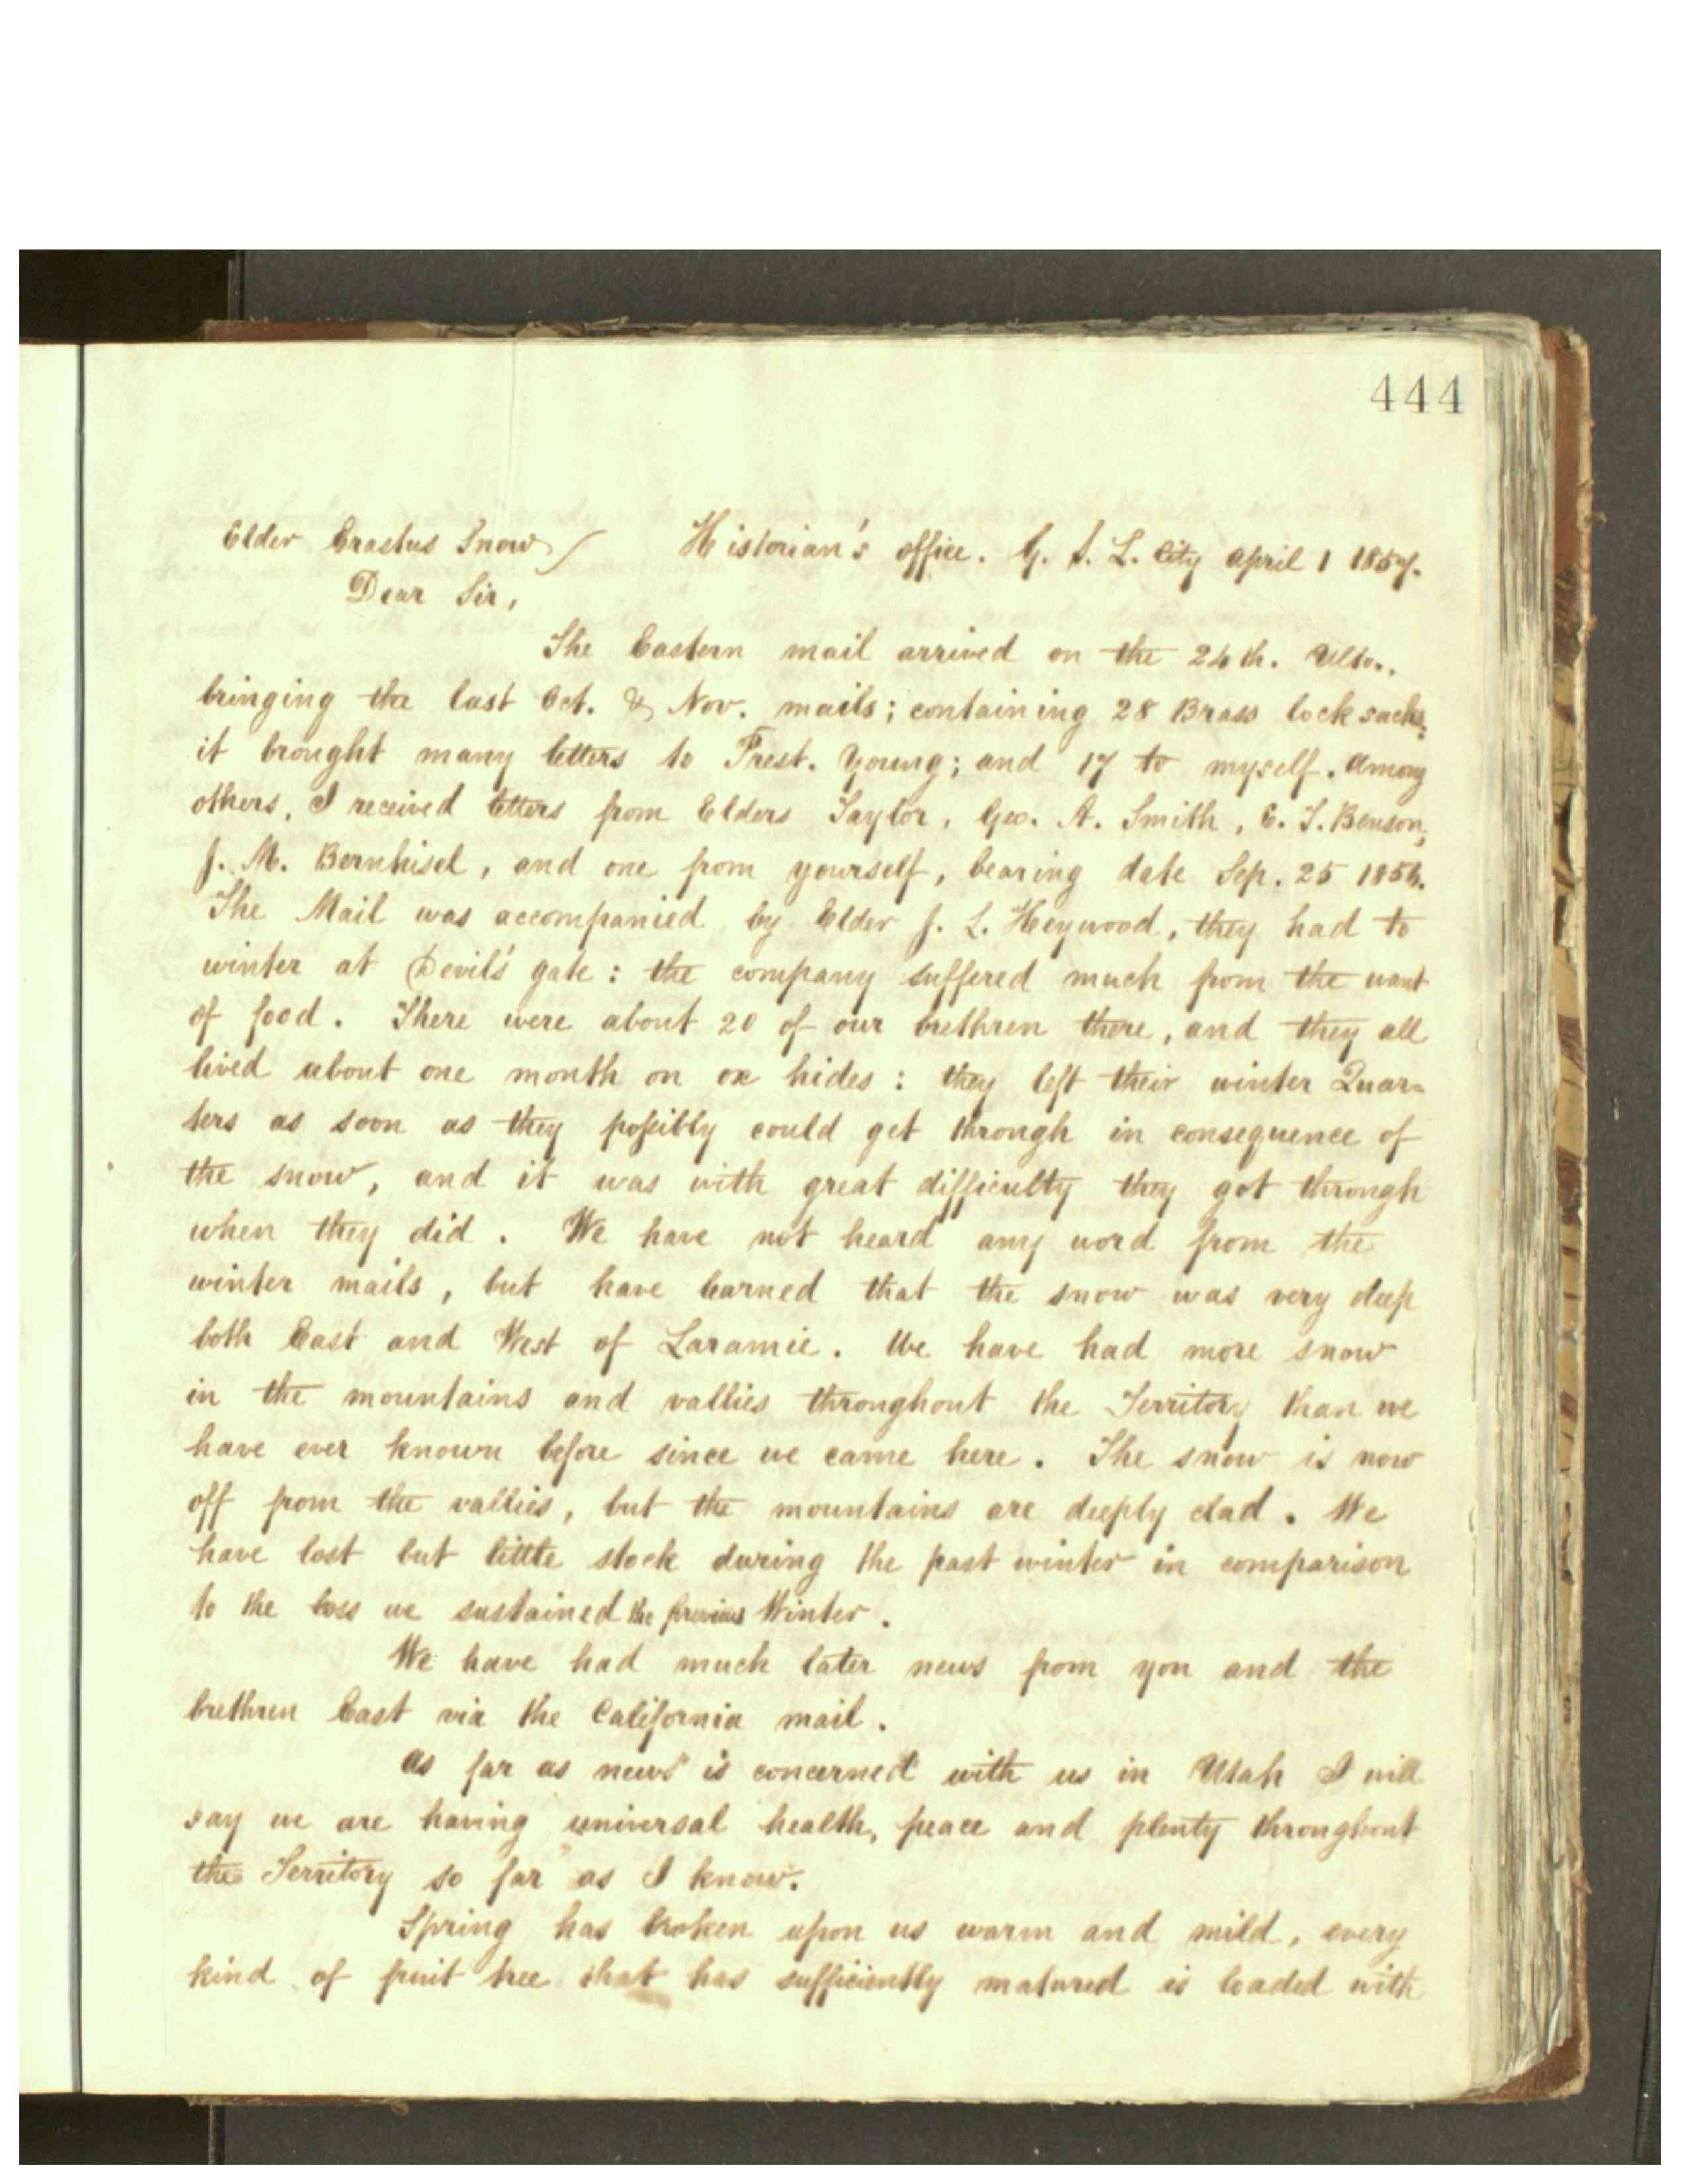 444
Elder Erastus Snow Historian's office. G. S. L. City April 1 1857.
Dear Sir,
The Eastern mail arrived on the 24th. Ulto.,
bringing the last Oct. & Nov. mails; containing 28 Brass lock sacks;
it brought many letters to Prest. Young; and 17 to myself. Among
others, I received letters from Elders Taylor, Geo. A. Smith, E. T. Benson,
J. M. Bernhisel, and one from yourself, bearing date Sep. 25 1856.
The Mail was accompanied by Elder J. L. Heywood, they had to
winter at Devil's gate: the company suffered much from the want
of food. There were about 20 of our brethren there, and they all
lived about one month on ox hides: they left their winter Quar=
ters as soon as they possibly could get through in consequence of
the snow, and it was with great difficulty they got through
when they did. We have not heard any word from the
winter mails, but have learned that the snow was very deep
both East and West of Laramie. We have had more snow
in the mountains and vallies throughout the Territory than we
have ever known before since we came here. The snow is now
off from the vallies, but the mountains are deeply clad. We
have lost but little stock during the past winter in comparison
to the loss we sustained the previous Winter.
We have had much later news from you and the
brethren East via the California mail.
As far as news is concerned with us in Utah I will
say we are having universal health, peace and plenty throughout
the Territory so far as I know.
Spring has broken upon us warm and mild, every
kind of fruit tree that has sufficiently matured is loaded with